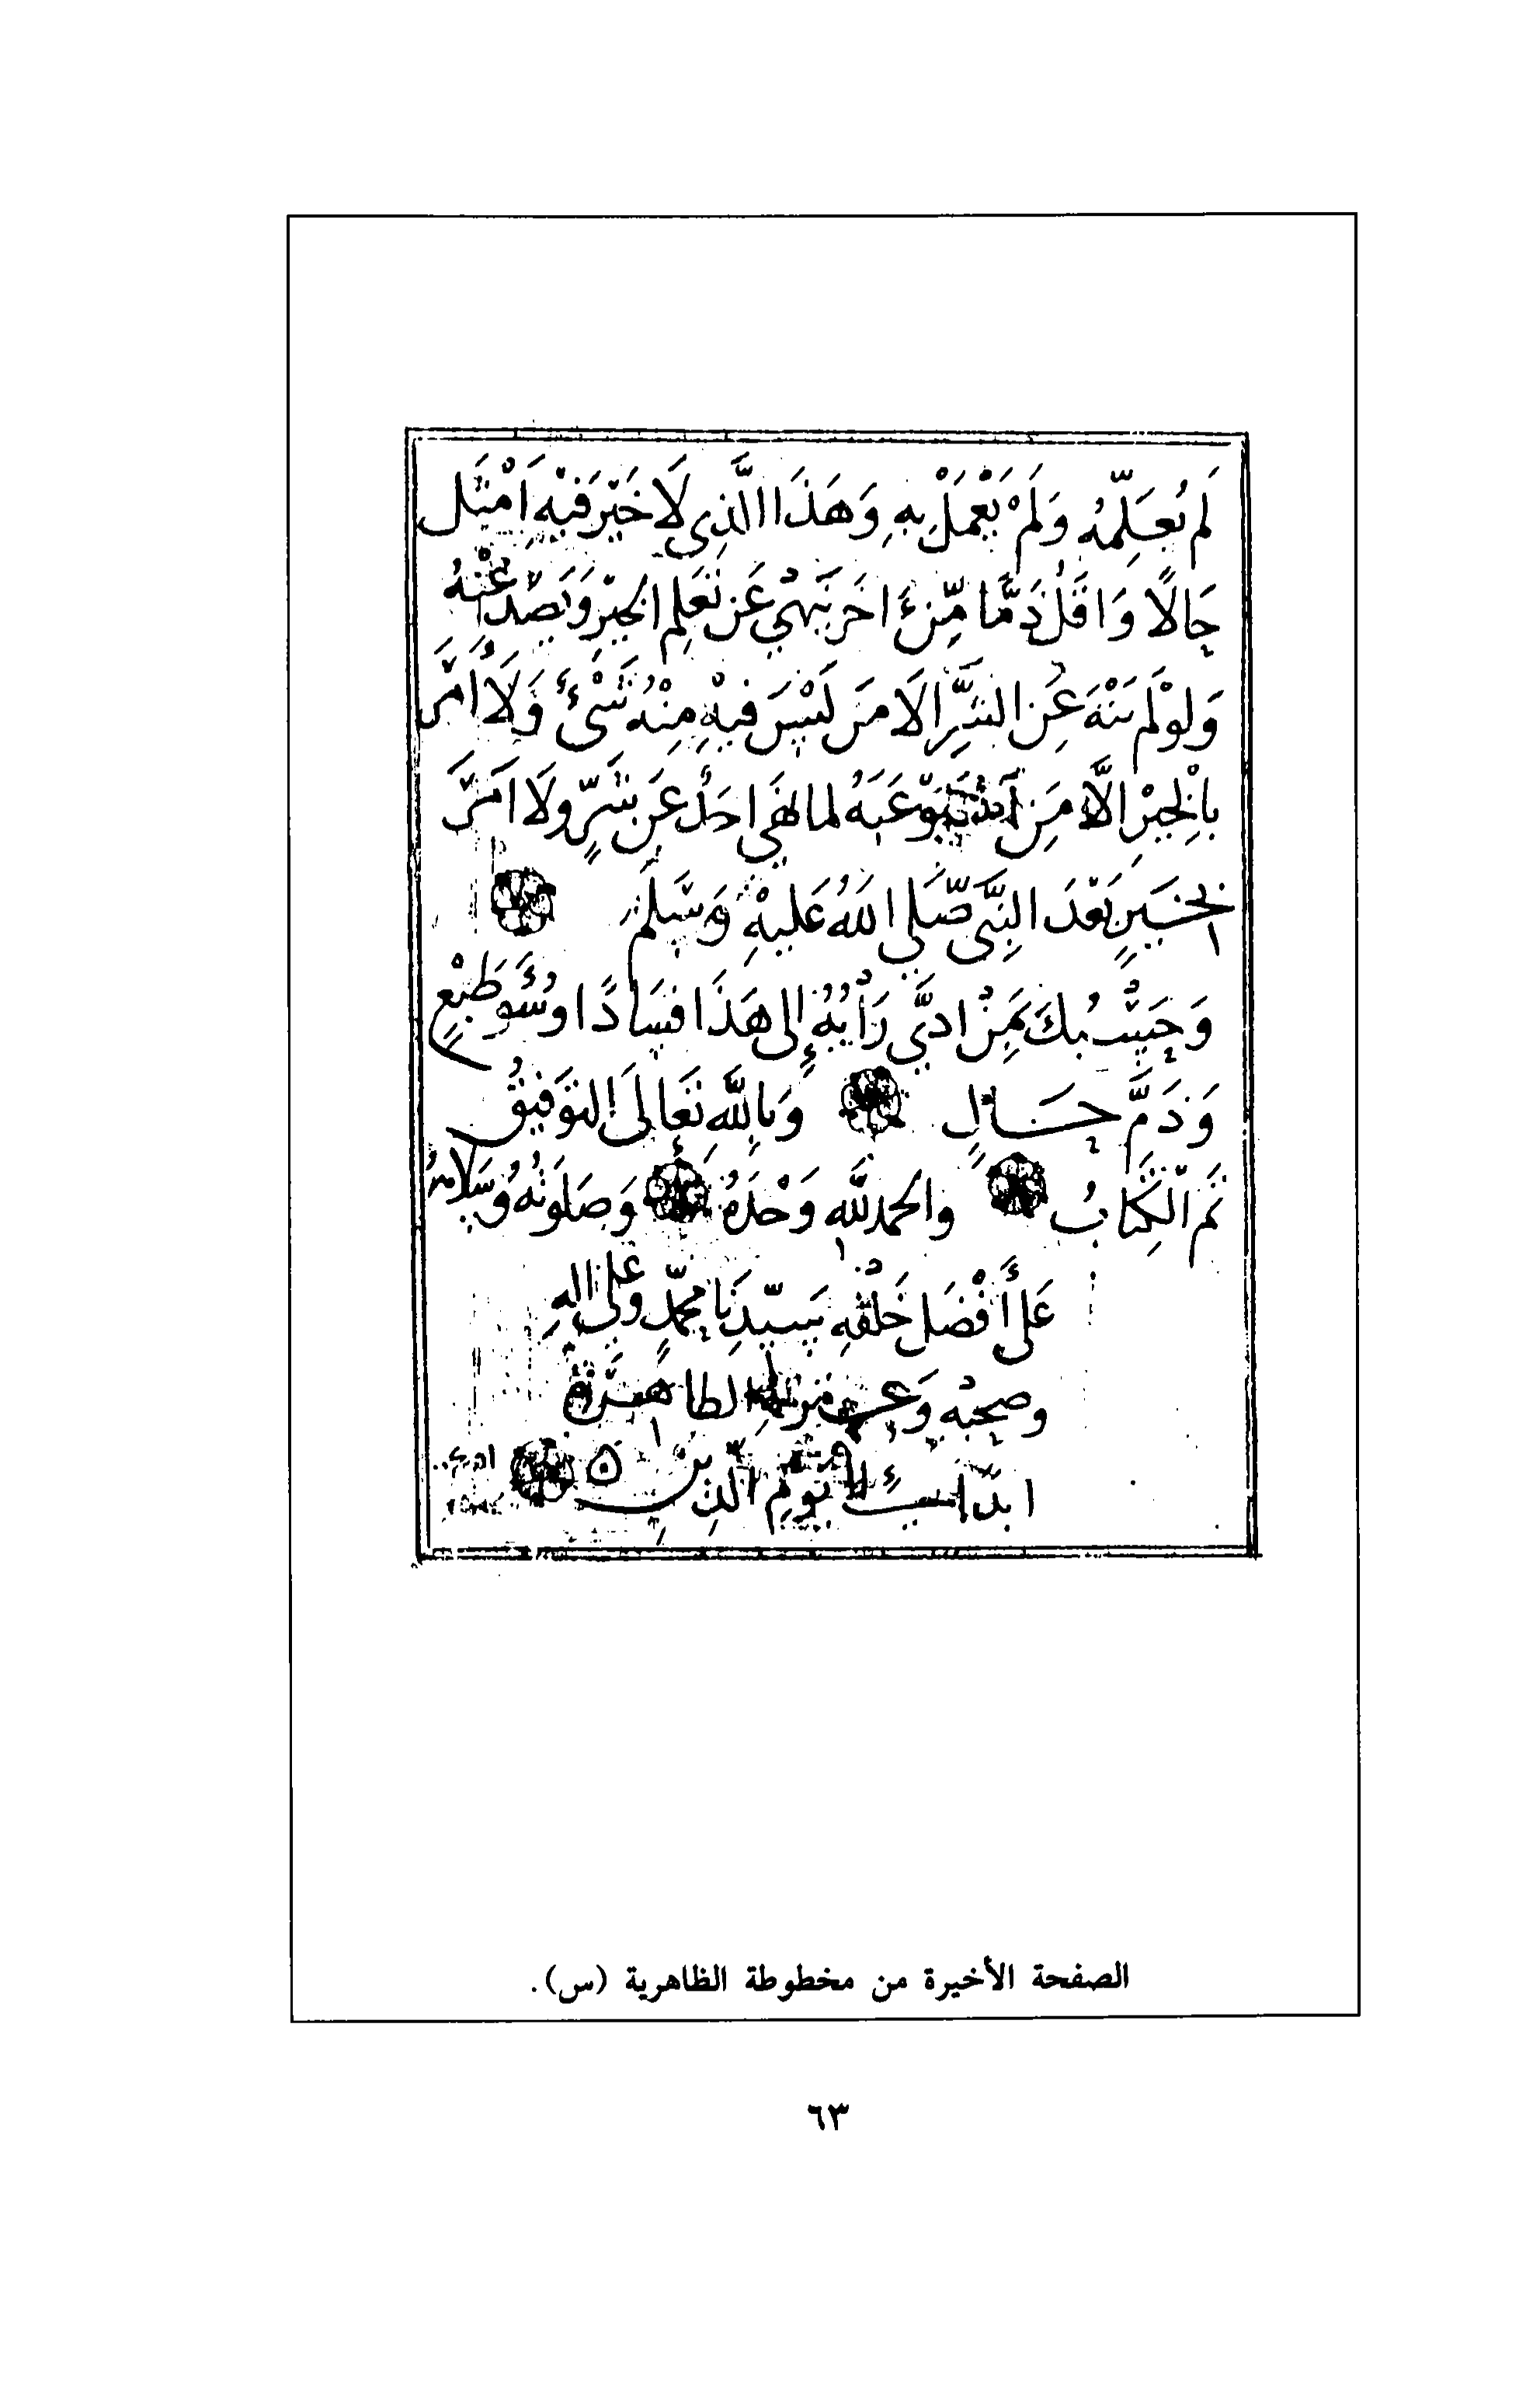 لَم يُعَلِّمْهُ وَلَمْ يَعْمَلْ بِهِ وَهَذَا الَّذِي لَا خَيْرَ فِيْهِ اَمْثَل
حَالًا وَاقَلُّ ذَمًّا مِّنْ ءَاخَر يَنْهىٰ عَن تَعَلم الخيْرِ وَيَصُدُّ عَنْهُ
وَلَوْ لَم يَنْهَ عَن الشَّرِّ الَا مَن لَيْسَ فِيْهِ مِنْهُ شَىْءٌ وَلَا أَمَر
بِالْخيْرِ الَّا مَن اسْتَوْعَبَهُ لما نهَى احَدٌ عَن شَرٍّ ولَا امَرَ
بخَيرٍ بَعْدَ النبَّى صَّلى اللهُ عَليْهِ وَسَلَّم
وَحَسْبُكَ بِمَنْ ادَّى رَأيُهُ إِلى هَذَا فسَادًا وسُوءَ طَبْعٍ
وَذَمَّ حَالٍ وَبِاللَّهِ تَعَالَى التوَفِيقُ
تَم الْكِتَابُ والحمد للَّه وَحْدَهُ وَصَلَوتُهُ وَسَلامُهُ
عَلىَ أفْضَل خَلْقِهِ سَيّدِنَا مُحمّدٍ وعَلى الهِ
وصحبهِ الطاهرة
ابدًا الى يَومِ الدِين
الصفحة الأخيرة من مخطوطة الظاهرية (س).
٦٣